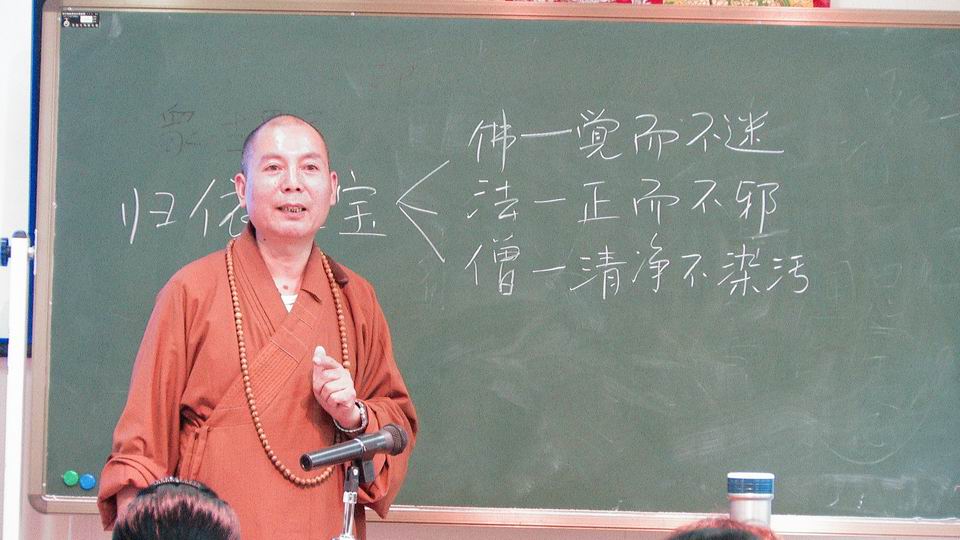 佛—觉而不迷
归依宝
法—正而不邪
僧—清净不染污